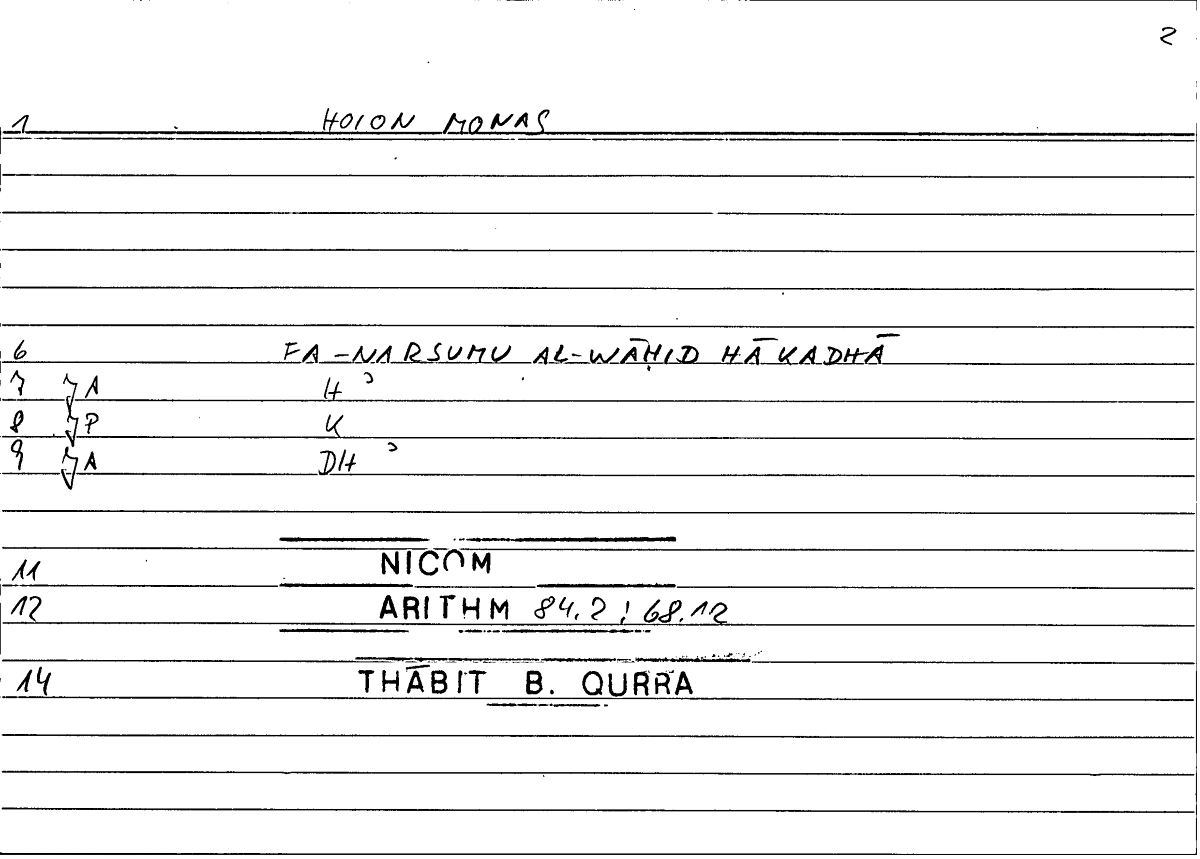 2
1 HOION MONAS
6 FA-NARSUMU AL-WĀḤID HĀKADHĀ
7 A H ͻ
8 P K
9 A DH ͻ
11 NICOM
12 ARITHM 84.2 ! 68.12
14 THĀBIT B. QURRA